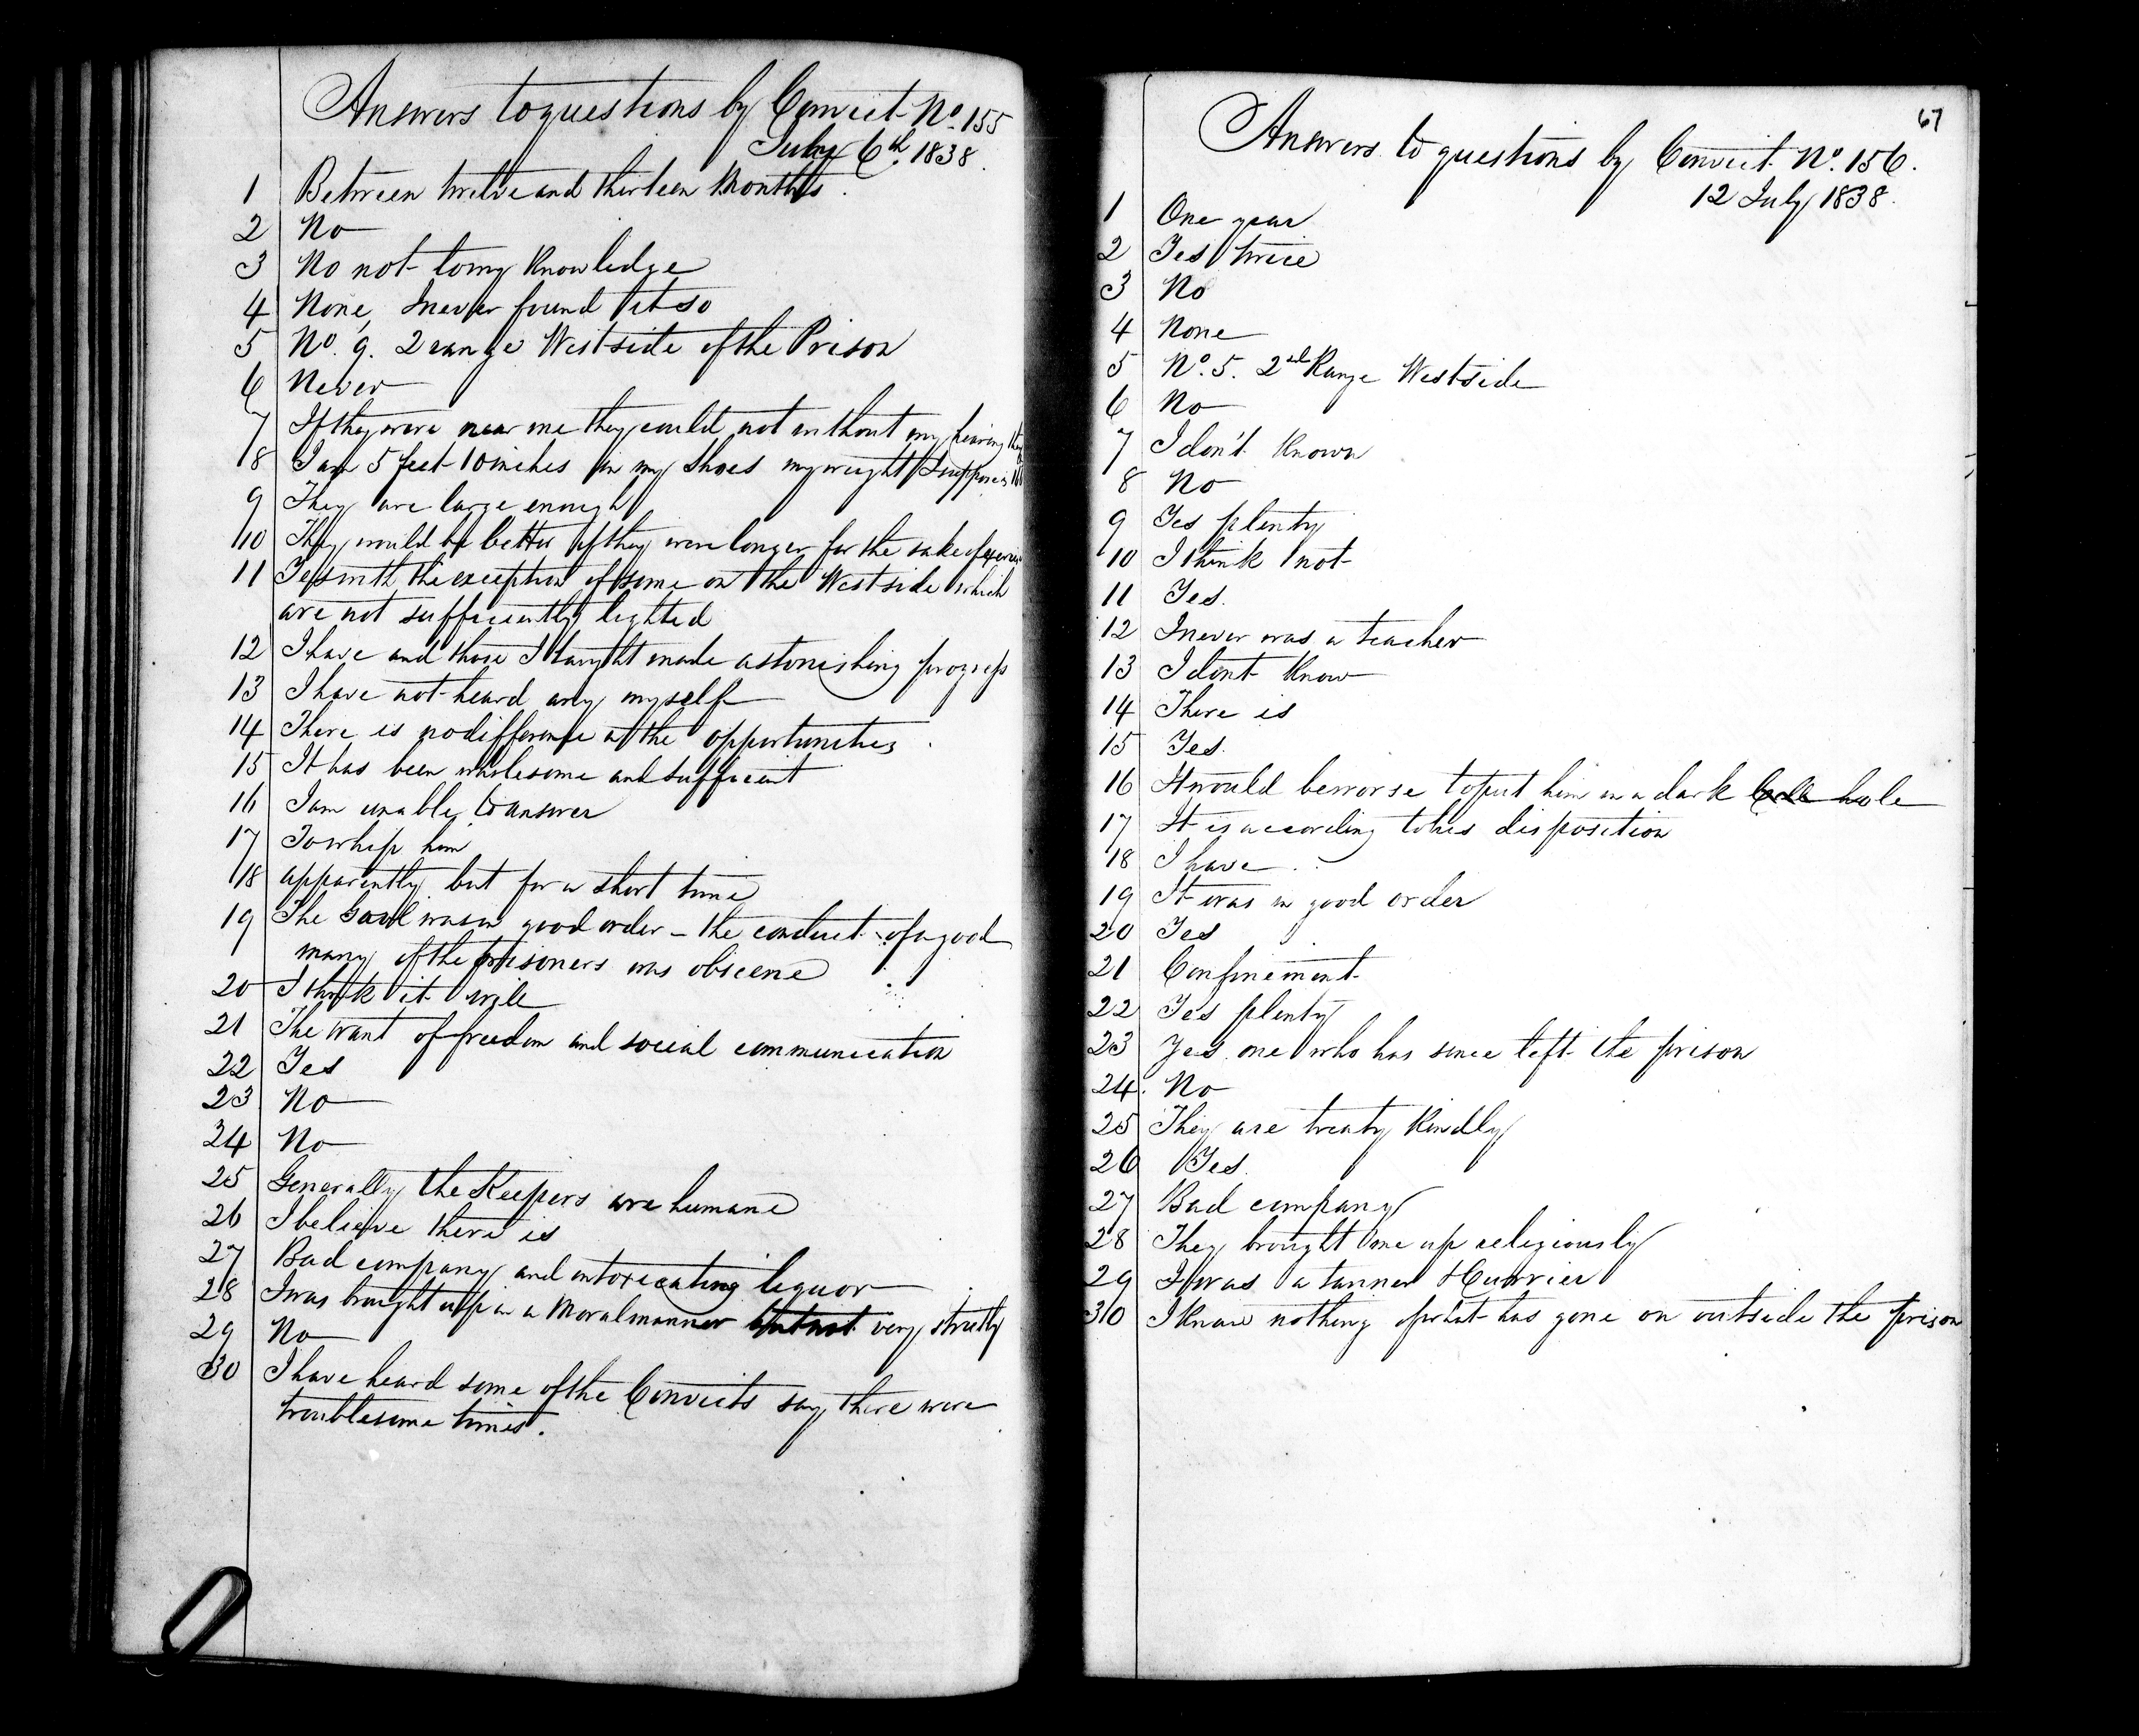 Answers to questions by Convict No. 155
July 6th 1838.
1 Between twelve and thirteen Months.
2 No
3 No not to my Knowledge
4 None, I never found it so
5 No. 9. 2 range West side of the Prison
6 Never
7 If they were near me they could not without my hearing
8 I am 5 feet 10 inches in my Shoes my weight I suppose is
9 They are large enough
10 They would be better if they were longer for the sake of
11 Yes with the exception of some on the West side which
are not sufficiently lighted
12 I have and those I taught made astonishing progress
13 I have not heard any myself
14 There is no difference in the opportunities.
15 It has been wholesome and sufficient
16 I am unable to answer
17 To whip him
18 apparently but for a short time
19 The Gaol was in good order – the conduct of a good
many of the prisoners was obscene
20 I think it will
21 The want of freedom and social communication
22 Yes
23 No
24 No
25 Generally the Keepers are humane
26 I believe there is
27 Bad company and intoxicating liquor
28 I was brought up in a Moral manner but not very strictly
29 No
30 I have heard some of the Convicts say there were
troublesome times.
67
Answers to questions by Convict No. 156.
12 July 1838.
1 One year
2 Yes twice
3 No
4 None
5 No. 5. 2nd Range West side
6 No
7 I don't Known
8 No
9 Yes plenty
10 I think not
11 Yes.
12 I never was a teacher
13 I dont Know
14 There is
15 Yes.
16 It would be worse to put him in a dark hole
17 It is according to his disposition
18 I have.
19 It was in good order
20 Yes
21 Confinement
22 Yes plenty
23 Yes one who has since left the prison
24. No
25 They are treaty Kindly
26 Yes.
27 Bad company
28 They brought me up religiously
29 I was a tanner & Currier
30 I Know nothing of what has gone on outside the prison